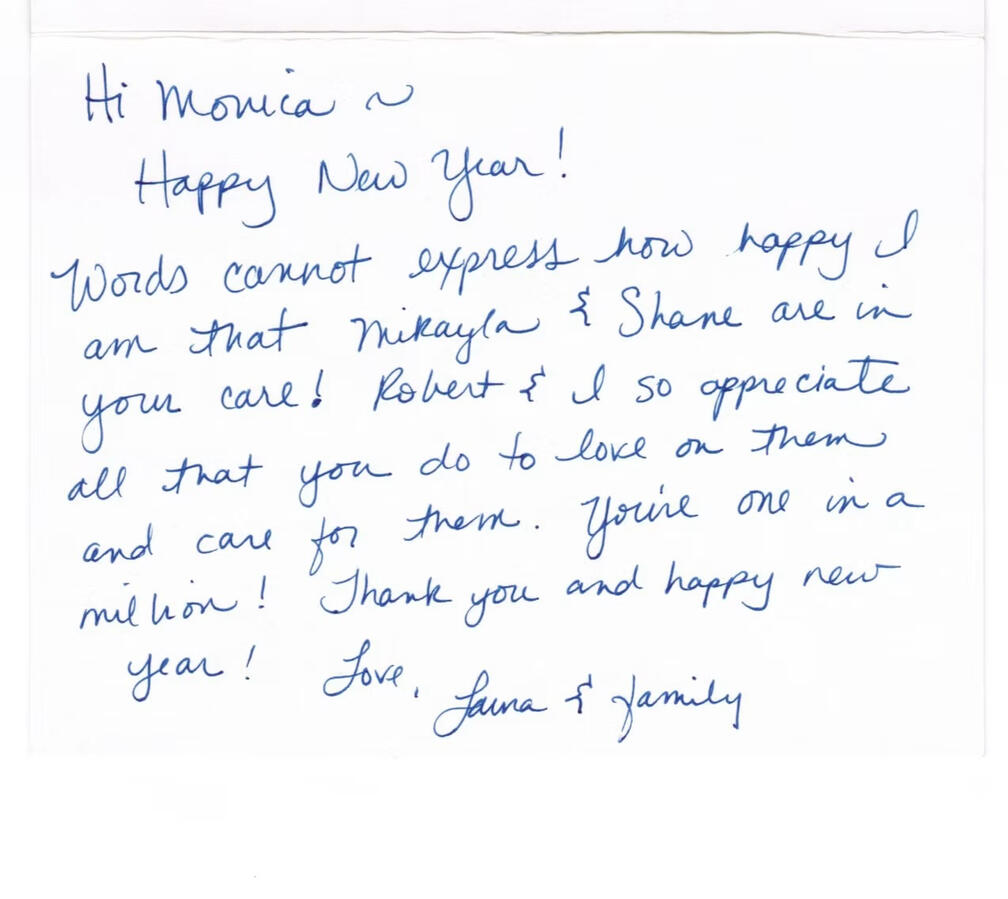 Hi Monica ~
Happy New Year!
Words cannot express how happy I
am that Mikayla & Shane are in
your care! Robert & I so appreciate
all that you do to love on them
and care for them. You're one in a
million! Thank you and happy new
year! Love,
Laura & family